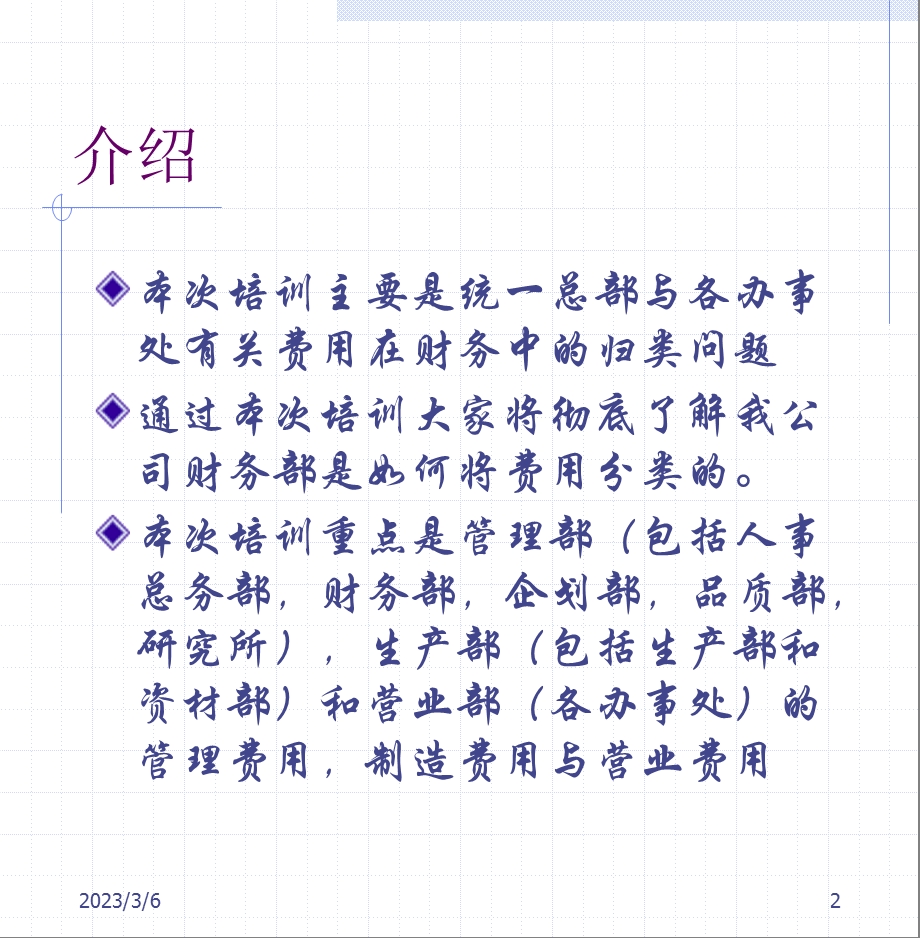 介绍
本次培训主要是统一总部与各办事
处有关费用在财务中的归类问题
通过本次培训大家将彻底了解我公
司财务部是如何将费用分类的。
本次培训重点是管理部（包括人事
总务部，财务部，企划部，品质部，
研究所），生产部（包括生产部和
资材部）和营业部（各办事处）的
管理费用，制造费用与营业费用
2023/3/6
2